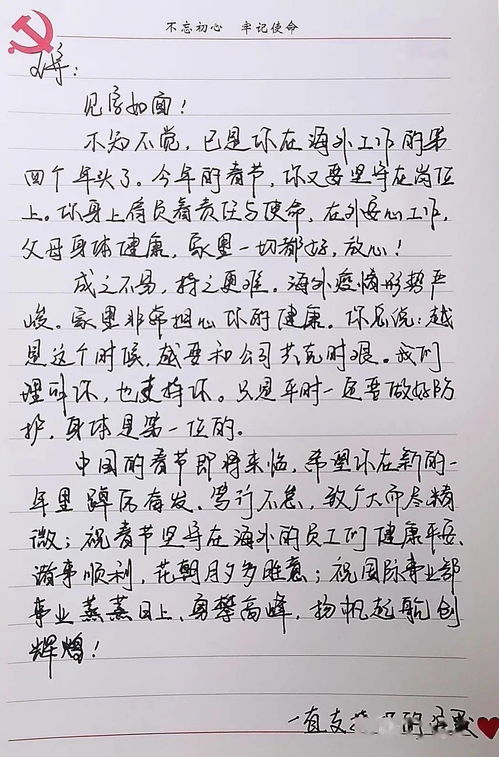 不忘初心 牢记使命
见字如面！
不知不觉，已是你在海外工作的第
四个年头了。今年的春节，你又要坚守在岗位
上。你身上肩负着责任与使命，在外安心工作，
父母身体健康，家里一切都好，放心！
成之不易，持之更难。海外疫情形势严
峻。家里非常担心你的健康。你总说：越
是这个时候，越要和公司共克时艰。我们
理解你，也支持你。只是平时一定要做好防
护，身体是第一位的。
中国的春节即将来临，希望你在新的一
年里踔厉奋发、笃行不怠，致广大而尽精
微；祝春节坚守在海外的员工们健康平安、
诸事顺利，花朝月夕多胜意；祝国际事业部
事业蒸蒸日上、勇攀高峰，扬帆起航创
辉煌！
一直支 的